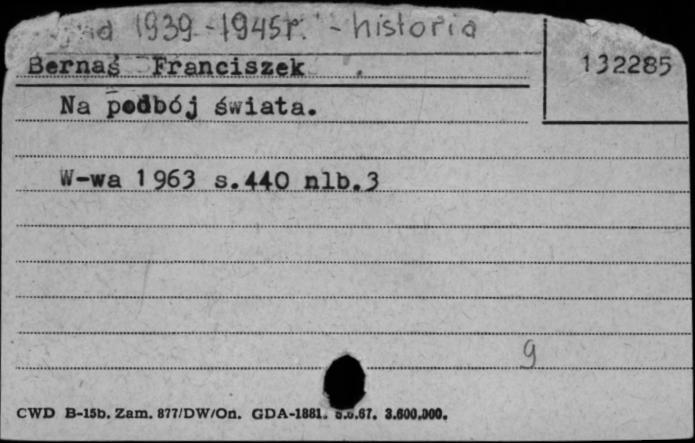 1939-1945r. - historia
132285
Bernaś Franciszek
Na podbój świata.
W-wa 1963 s.440 nlb.3
9
CWD B-15b. Zam. 877/DW/On. GDA-1881. 5.6.67. 3.600.000.